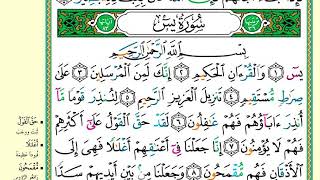 سُورَةُ يسٓ
بِسْمِ اللَّهِ الرَّحْمَٰنِ الرَّحِيمِ
يسٓ ١ وَالْقُرْآنِ الْحَكِيمِ ٢ إِنَّكَ لَمِنَ الْمُرْسَلِينَ ٣ عَلَىٰ
صِرَٰطٍ مُّسْتَقِيمٍ ٤ تَنزِيلَ الْعَزِيزِ الرَّحِيمِ ٥ لِتُنذِرَ قَوْمًا مَّا
أُنذِرَ ءَابَآؤُهُمْ فَهُمْ غَٰفِلُونَ ٦ لَقَدْ حَقَّ الْقَوْلُ عَلَىٰٓ أَكْثَرِهِمْ
فَهُمْ لَا يُؤْمِنُونَ ٧ إِنَّا جَعَلْنَا فِىٓ أَعْنَٰقِهِمْ أَغْلَٰلًا فَهِىَ إِلَى
الْأَذْقَانِ فَهُم مُّقْمَحُونَ ٨ وَجَعَلْنَا مِنۢ بَيْنِ أَيْدِيهِمْ سَدًّا
حَقَّ الْقَوْلُ
أَغْلَٰلًا
مُّقْمَحُونَ